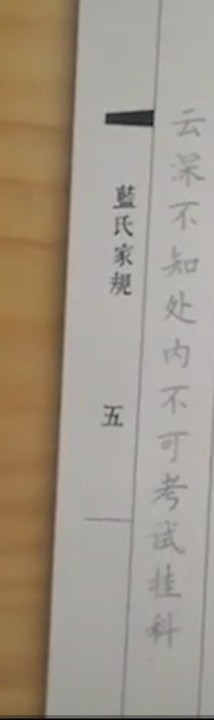 云深不知处内不可考试挂科
藍氏家規
五